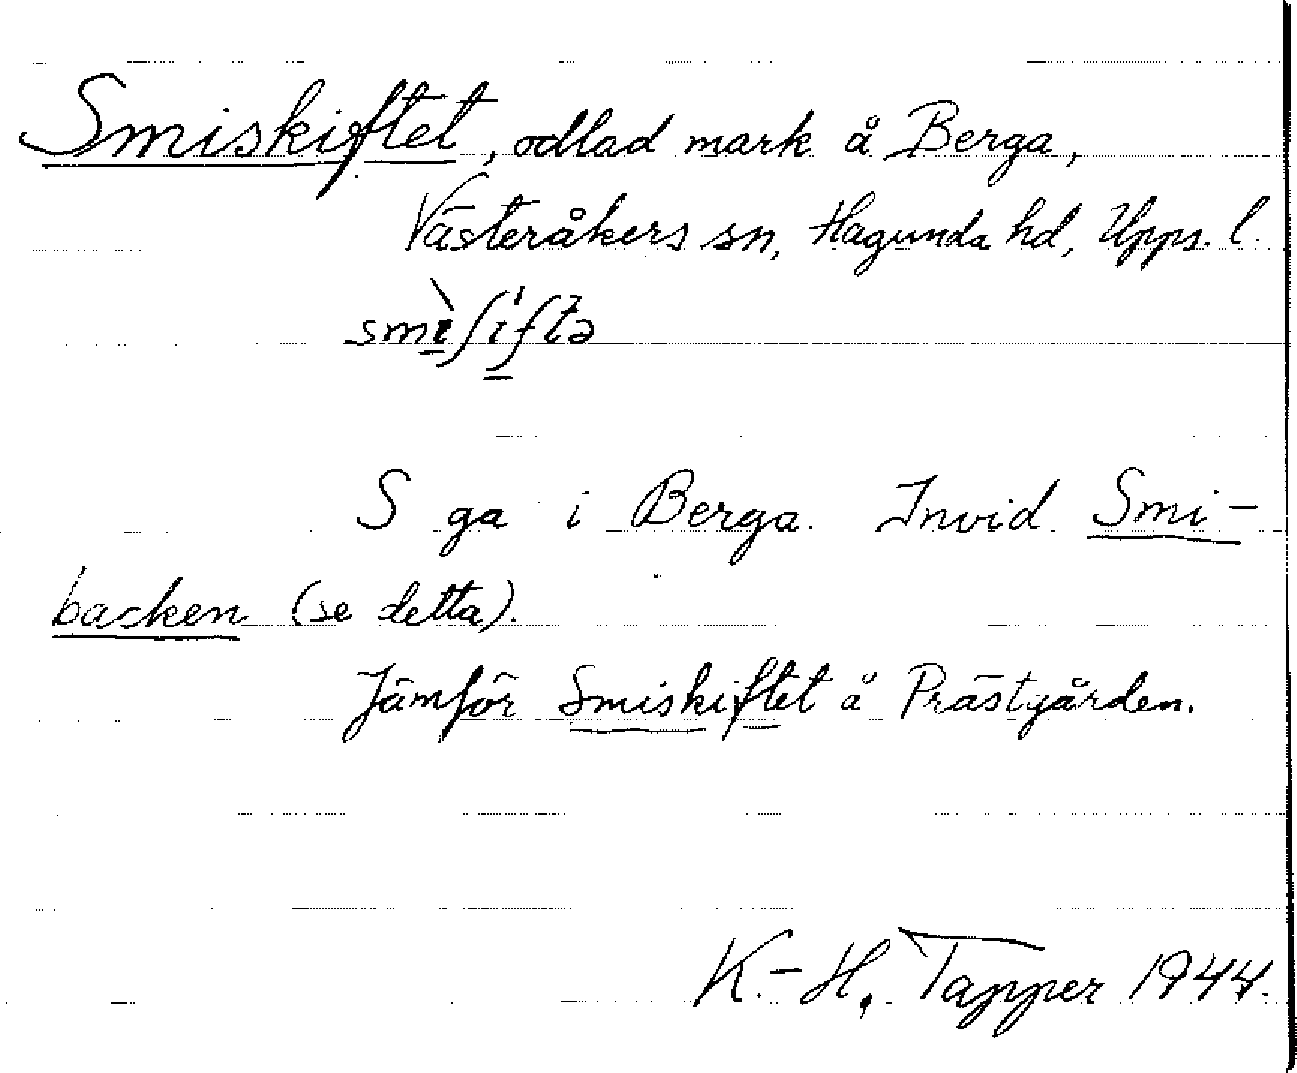 Smiskiftet, odlad mark å Berga,
Västeråkers sn, Hagunda hd, Upps. l.
smìʃiftə
S ga i Berga. Invid Smi-
backen (se detta).
Jämför Smiskiftet å Prästgården.
K.-H. Tapper 1944.